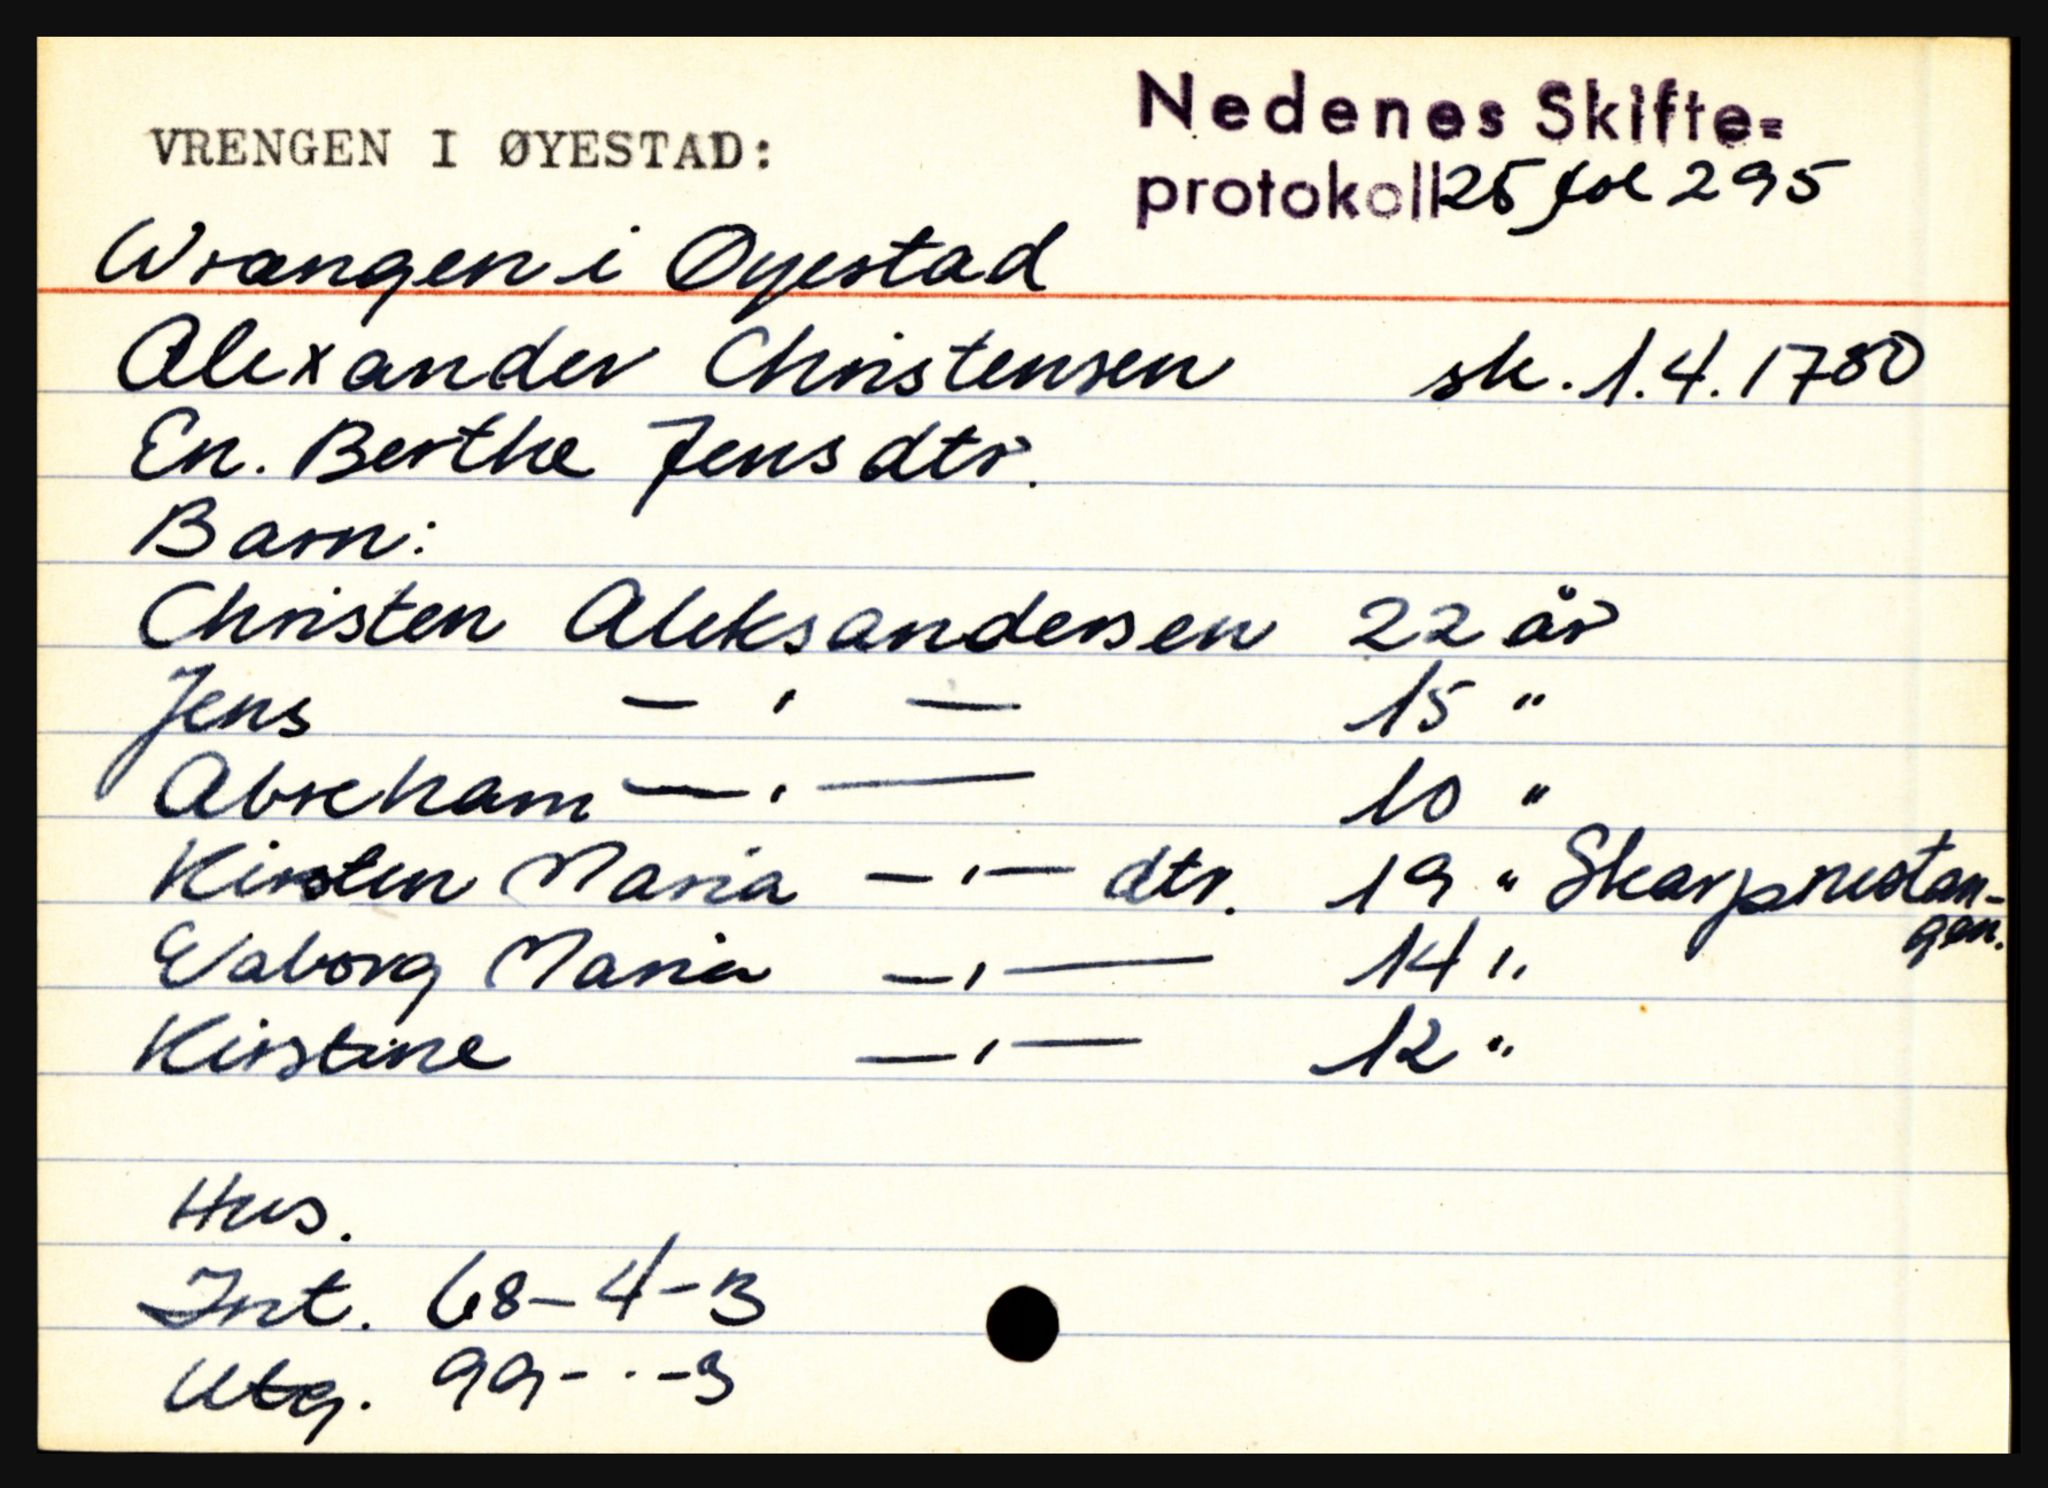 VRENGEN I ØYESTAD:
Nedenes Skifte=
protokoll 25 fol 295
Wrangen i Øyestad
Alexander Christensen sk. 1.4.1780
En. Berthe Jensdtr.
Barn:
Christen Aleksandersen 22 år
Jens — ' — 15 "
Abreham — ' — 10 "
Kirsten Maria — ' — dtr. 19 " Skarpnestan-
gen.
Waborg Maria — ' — 14 "
Kirstine — ' — 12 "
Hus.
Int. 68-4-3
Utg. 99- · -3